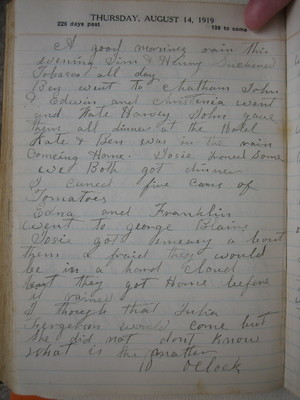 THURSDAY, AUGUST 14, 1919
226 days past 139 to come
A good morning rain this
evening Jim & Henry Suckered
Tobacco all day
Ben went to Chatham John
& Edwin and Christenia went
and Kate Harvey John gave
them all dinner at the Hotel
Kate & Ben was in the rain
comeing Home. Josie Ironed Some
we Both got dinner
I caned five cans of
Tomatoes
Edna and Franklin
went to george Brains
Josie got uneasy a bout
them a fraid they would
be in a hard cloud
but they got Home before
it rained
I though that Julia
Fergerson would come but
She did not dont Know
what is the matter
10 oclock